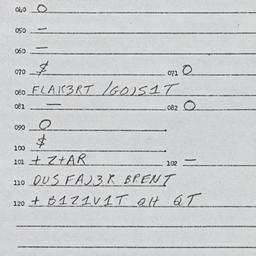 040 O
050 –
060 –
070 $ 071 O
080 FLAK3RT /GOJS1T
081 – 082 O
090 O
100 $
101 + Z+AR 102 –
110 OUS FAJ3R BRENT
120 + B1Z1V1T QH QT